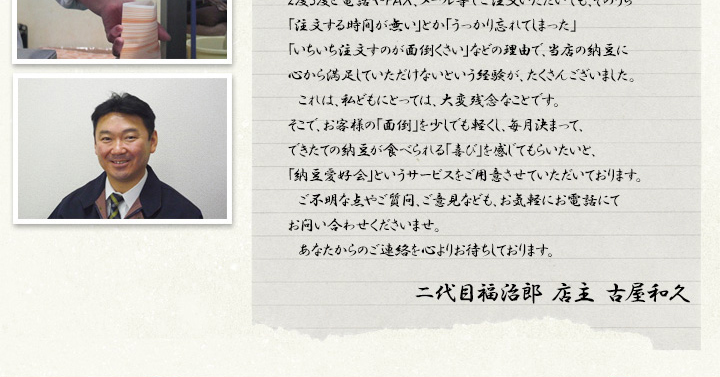 2度3度と電話やFAX、メール等でご注文いただいても、そのうち
「注文する時間が無い」とか「うっかり忘れてしまった」
「いちいち注文すのが面倒くさい」などの理由で、当店の納豆に
心から満足していただけないという経験が、たくさんございました。
これは、私どもにとっては、大変残念なことです。
そこで、お客様の「面倒」を少しでも軽くし、毎月決まって、
できたての納豆が食べられる「喜び」を感じてもらいたいと、
「納豆愛好会」というサービスをご用意させていただいております。
ご不明な点やご質問、ご意見なども、お気軽にお電話にて
お問い合わせくださいませ。
あなたからのご連絡を心よりお待ちしております。
二代目福治郎 店主 古屋和久